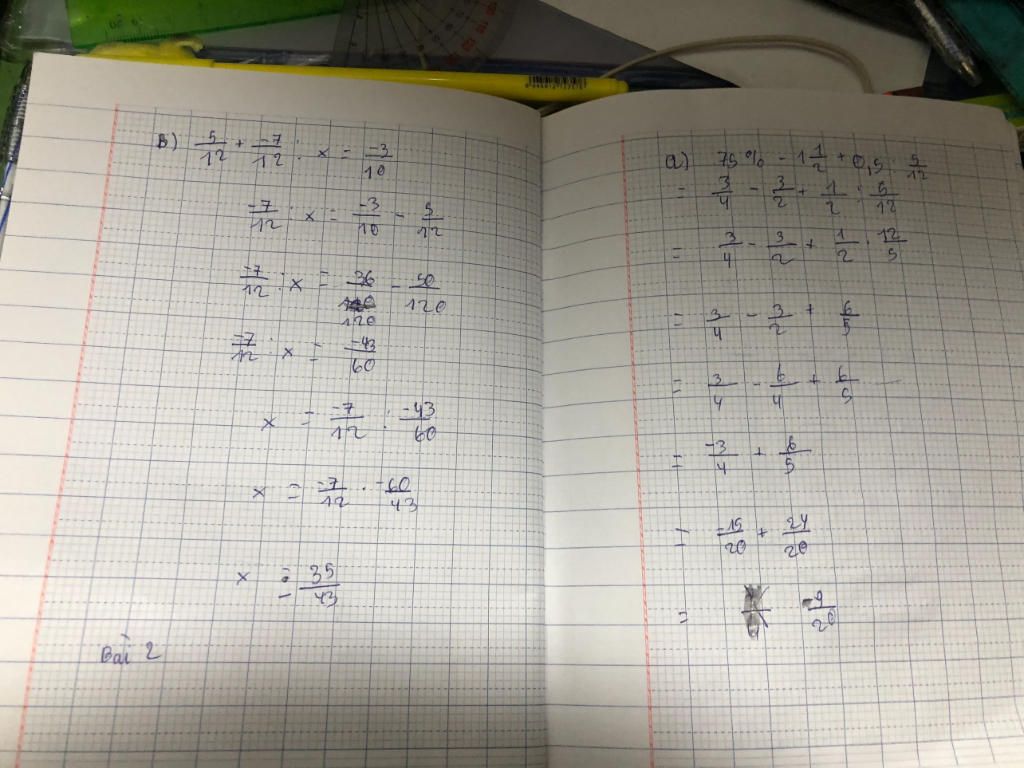 B) 5/12 + -7/12 : x = -3/10
-7/12 : x = -3/10 - 5/12
-7/12 : x = 36/120 - 50/120
-7/12 : x = -43/60
x = -7/12 : -43/60
x = -7/12 . -60/43
x = 35/43
Bài 2
a) 75% - 1 1/2 + 0,5 : 5/12
= 3/4 - 3/2 + 1/2 : 5/12
= 3/4 - 3/2 + 1/2 . 12/5
= 3/4 - 3/2 + 6/5
= 3/4 - 6/4 + 6/5
= -3/4 + 6/5
= -15/20 + 24/20
= -9/20